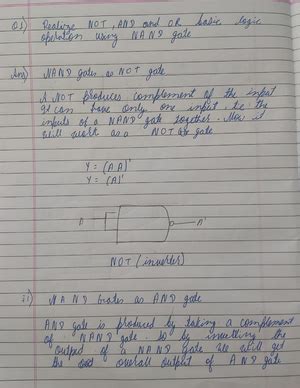 Q1) Realize NOT, AND and OR basic logic
operation using NAND gate
Ans) NAND gates as NOT gate
A NOT produces complement of the input
It can have only one input. i.e. the
inputs of a NAND gate together. Now it
will work as a NOT gate
Y = (A A)'
Y = (A)'
A A'
NOT (inverter)
ii) NAND Gates as AND gate
AND gate is produced by taking a complement
of NAND gate. So by inverting the
output of a NAND gate we will get
the overall output of AND gate